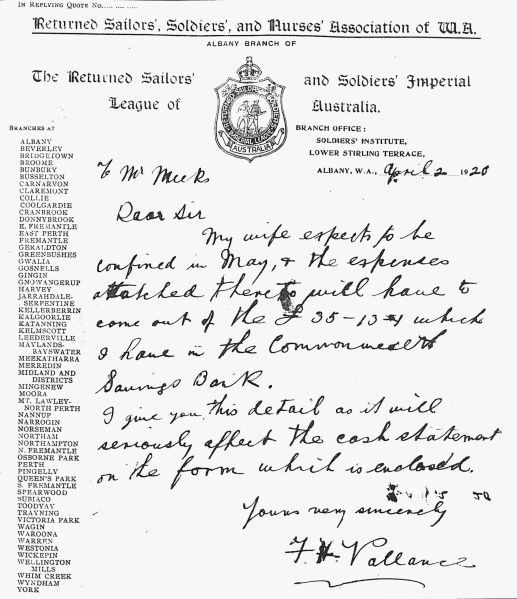 IN REPLYING QUOTE No.............
Returned Sailors', Soldiers', and Nurses' Association of W.A.
ALBANY BRANCH OF
The Returned Sailors' and Soldiers' Imperial
League of Australia.
AUSTRALIA
BRANCH OFFICE:
SOLDIERS' INSTITUTE,
LOWER STIRLING TERRACE,
ALBANY, W.A., April 2 1920
BRANCHES AT
ALBANY
BEVERLEY
BRIDGETOWN
BROOME
BUNBURY
BUSSELTON
CARNARVON
CLAREMONT
COLLIE
COOLGARDIE
CRANBROOK
DONNYBROOK
E. FREMANTLE
EAST PERTH
FREMANTLE
GERALDTON
GREENBUSHES
GWALIA
GOSNELLS
GINGIN
GNOWANGERUP
HARVEY
JARRAHDALE-
SERPENTINE
KELLERBERRIN
KALGOORLIE
KATANNING
KELMSCOTT
LEEDERVILLE
MAYLANDS-
BAYSWATER
MEEKATHARRA
MERREDIN
MIDLAND AND
DISTRICTS
MINGENEW
MOORA
MT. LAWLEY-
NORTH PERTH
NANNUP
NARROGIN
NORSEMAN
NORTHAM
NORTHAMPTON
N. FREMANTLE
OSBORNE PARK
PERTH
PINGELLY
QUEEN'S PARK
S. FREMANTLE
SPEARWOOD
SUBIACO
TOODYAY
TRAYNING
VICTORIA PARK
WAGIN
WAROONA
WARREN
WESTONIA
WICKEPIN
WELLINGTON
MILLS
WHIM CREEK
WYNDHAM
YORK
To Mr Meeks
Dear Sir
My wife expects to be
confined in May, & the expenses
attached thereto will have to
come out of the £35-13-1 which
I have in the Commonwealth
Savings Bank.
I give you this detail as it will
seriously affect the cash statement
on the form which is enclosed.
Yours very sincerely
F. H. Vallance